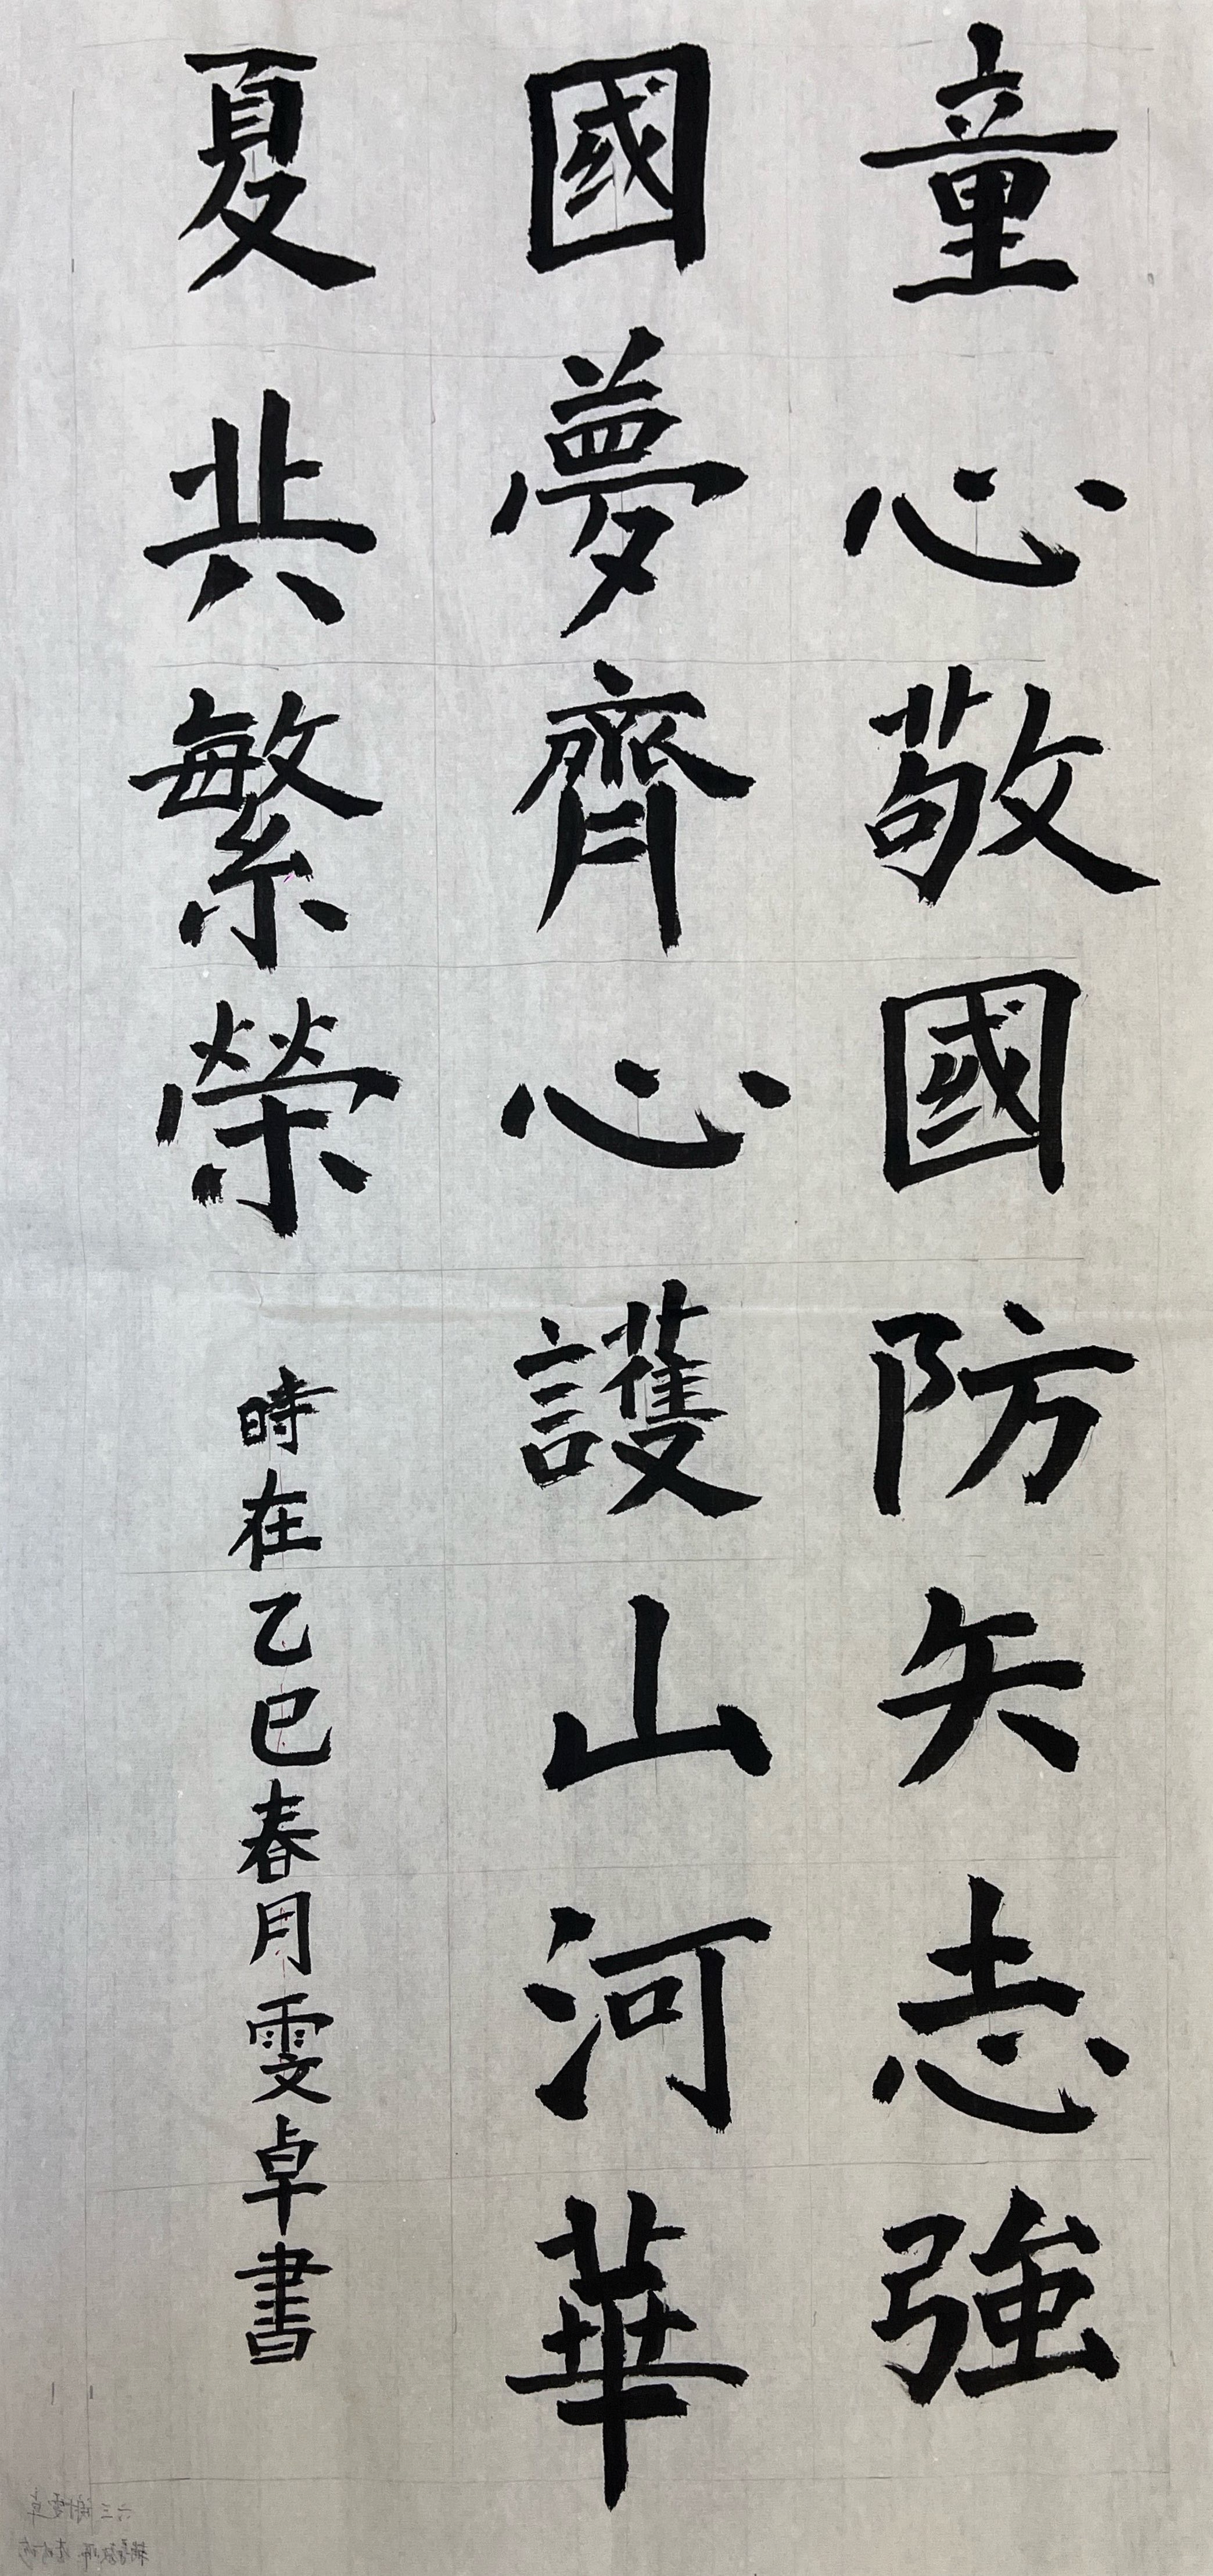 童心敬國防矢志強
國夢齊心護山河華
夏共繁榮
時在乙巳春月雯卓書